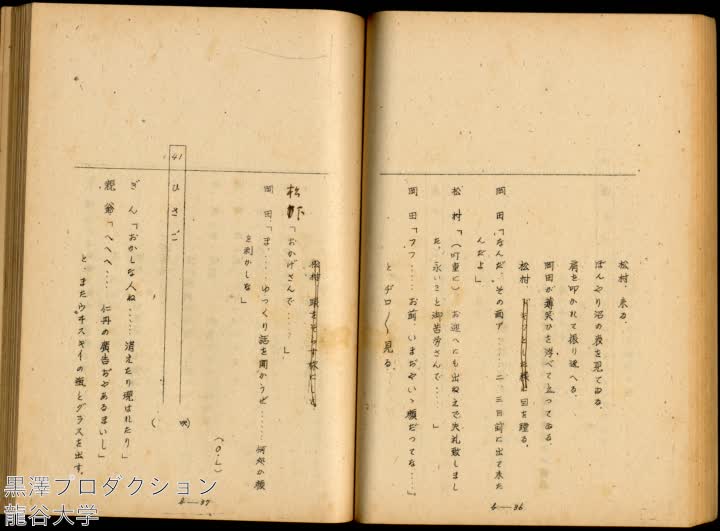 松村、来る。
ぼんやり沼の表を見てゐる。
肩を叩かれて振り返へる。
岡田が薄笑ひを浮べて立つてゐる。
松村、ドキッとした様に目を瞠る。
岡田「なんだ、その面ア……二、三日前に出て来た
んだよ」
松村「(叮重に)お迎へにも出ねえで失礼致しまし
た。永いこと御苦労さんで……」
岡田「フフ……お前、いまぢやいゝ顔だつてな……」
とヂロ〳〵見る。
4—36
松村、頭をそらす様にして
松村「おかげさんで……」
岡田「ま……ゆつくり話を聞かうぜ……何処か顔
を剥かしな」
(O・L)
41 ひさご
(夜)
ぎん「おかしな人ね……消えたり現はれたり」
親爺「へへへ……仁丹の廣告ぢやあるまいし」
と、またウヰスキイの瓶とグラスを出す。
4—37
黒澤プロダクション
龍谷大学